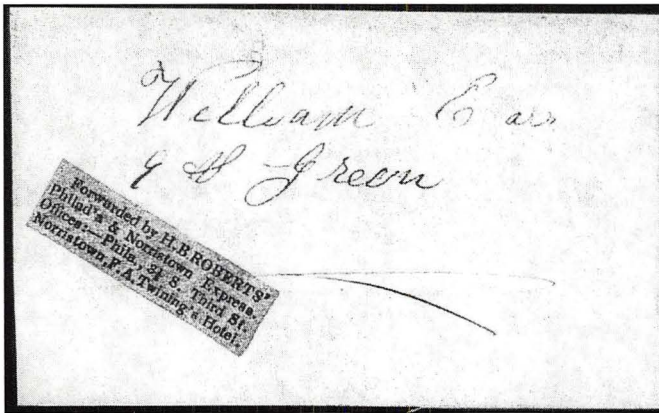 William Carr
9 & Green
Forwarded by H. B. ROBERTS'
Philad'a & Norristown Express.
Offices:—Phila., 31 S. Third St.
Norristown, F. A. Twining's Hotel.